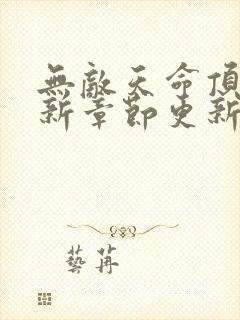 無敵天命頂
新章節更新
藝苒